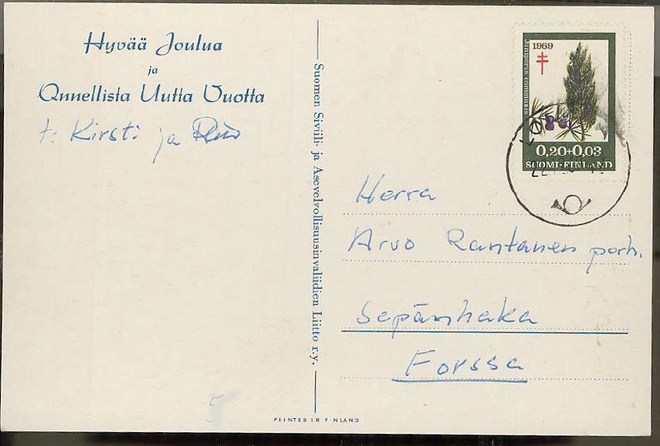 Hyvää Joulua
ja
Onnellista Uutta Vuotta
t: Kirsti ja
Suomen Siviili- ja Asevelvollisuusinvaliidien Liitto r.y.
1969
Juniperus communis
0,20+0,03
SUOMI-FINLAND
Herra
Arvo Rantanen perh.
Sepänhaka
Forssa
PRINTED IN FINLAND